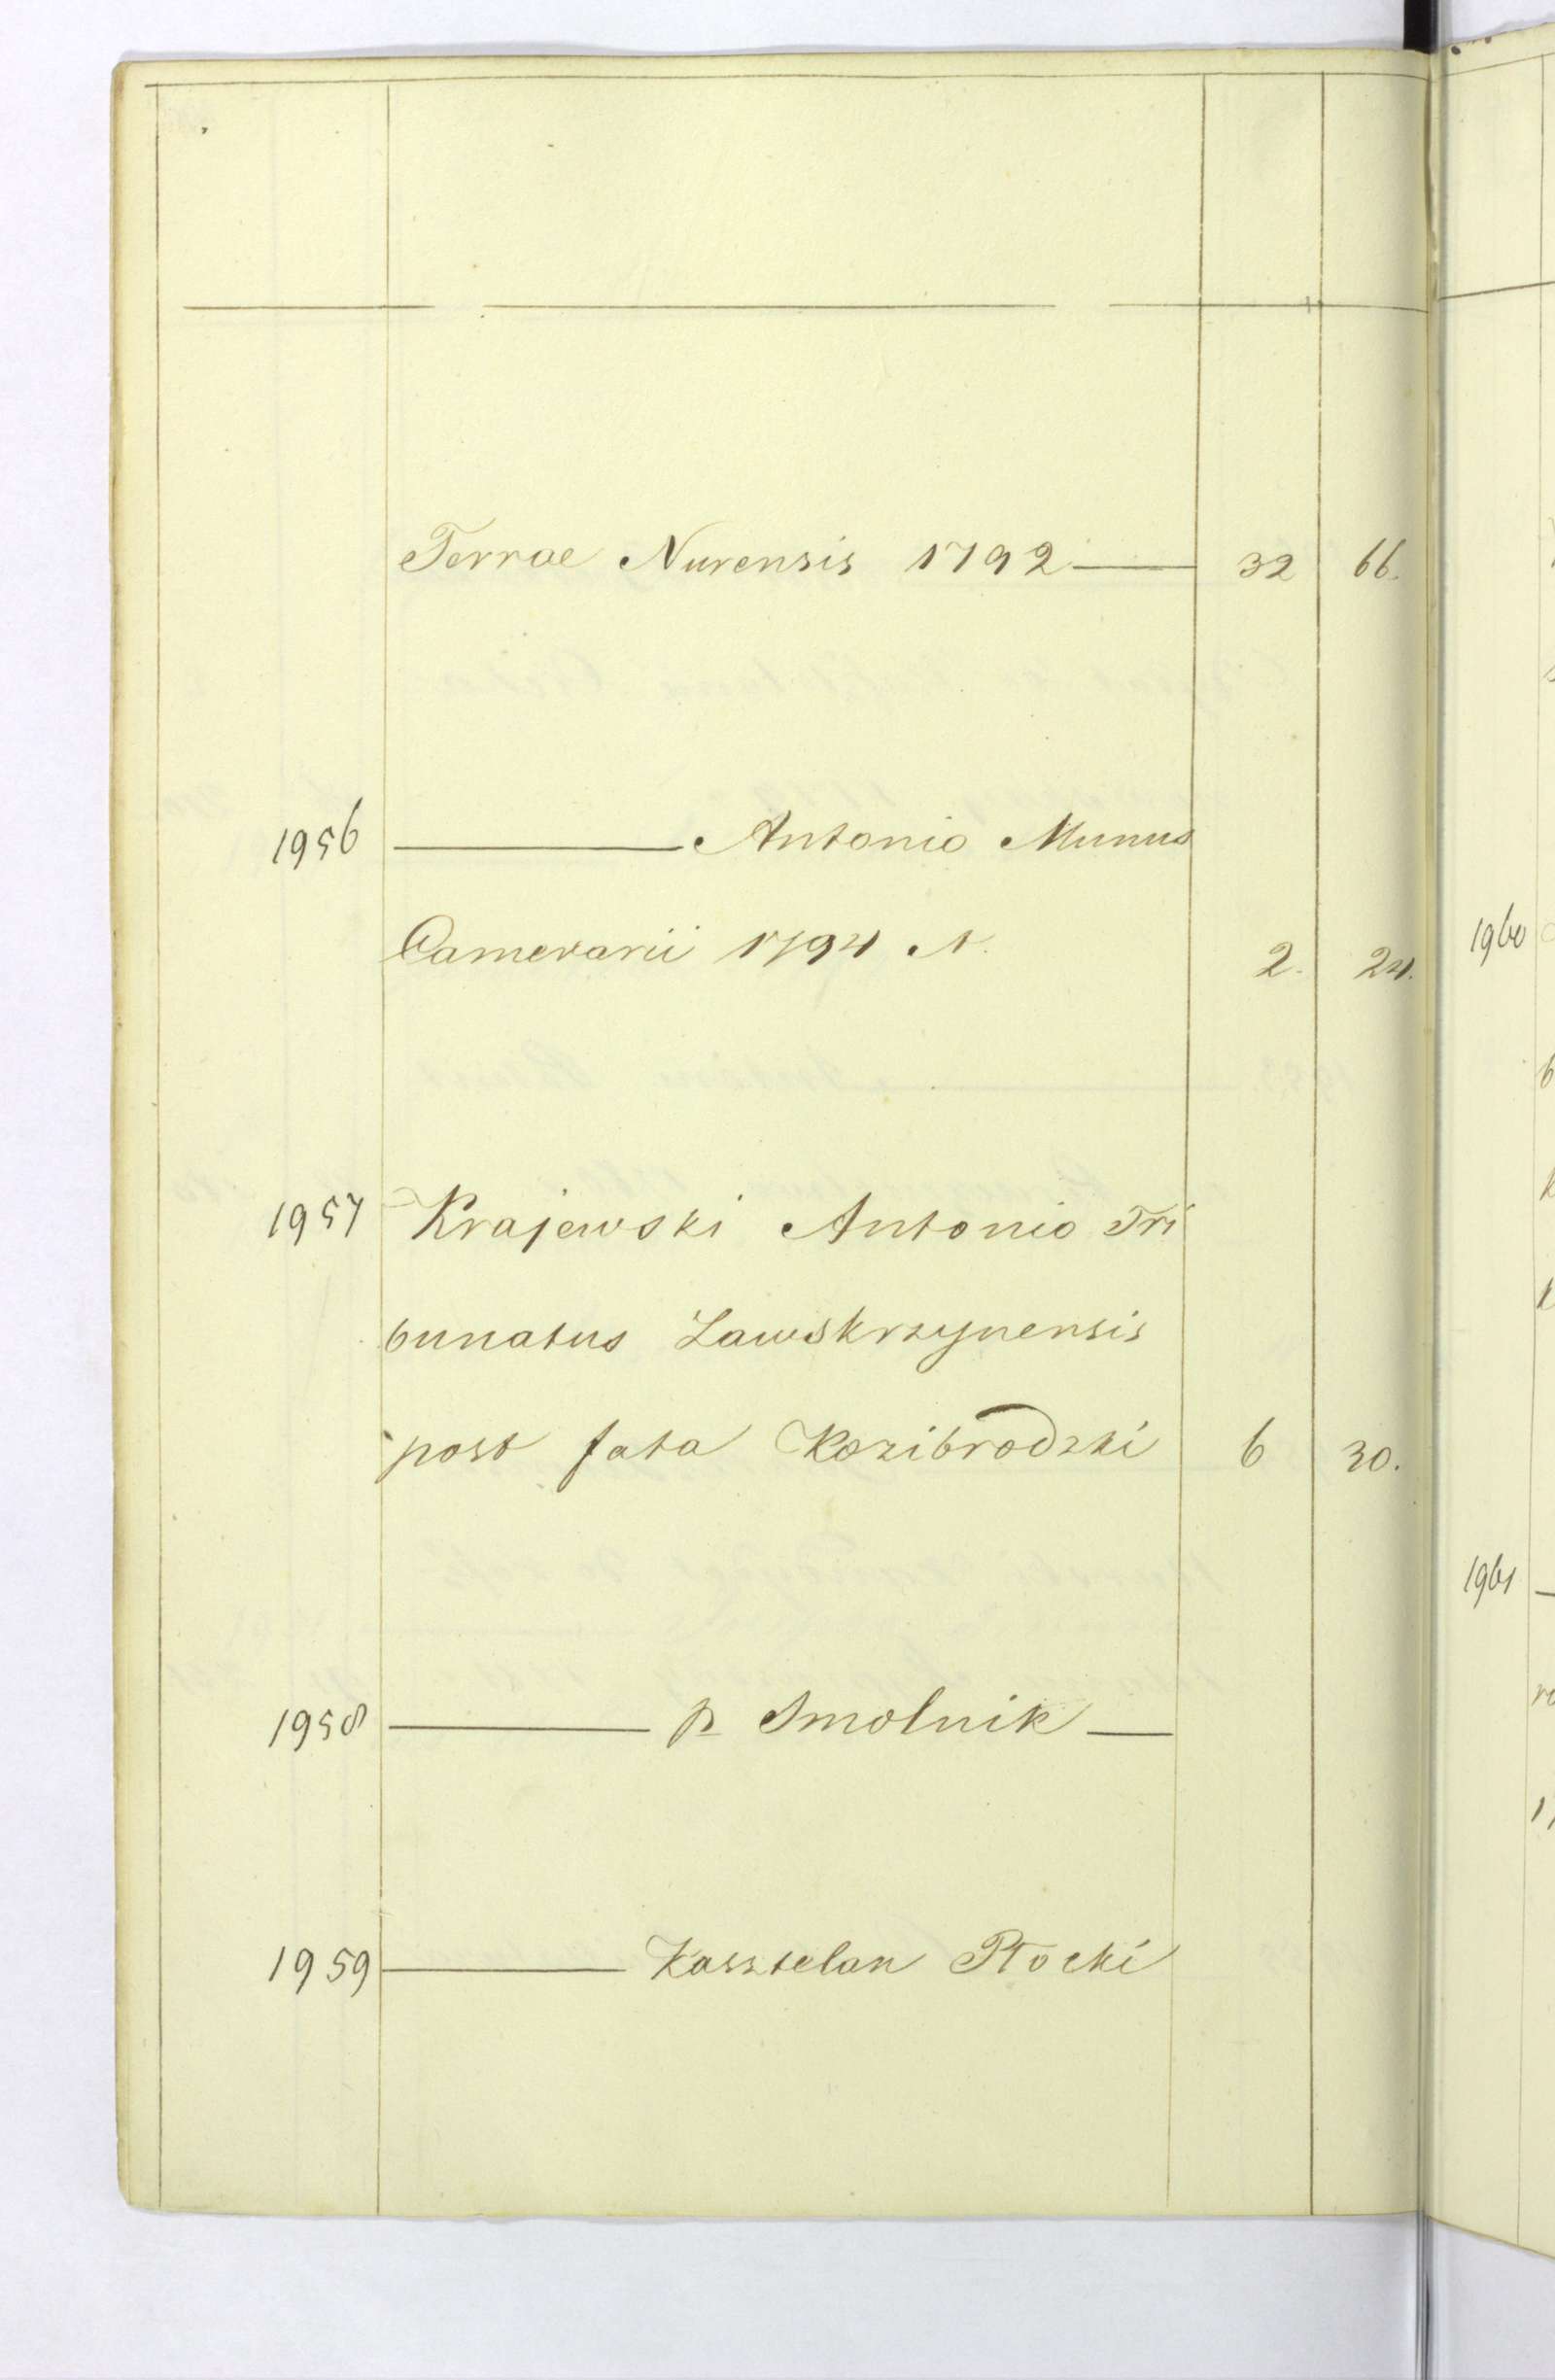 Terrae Nurensis 1792 — 32 66.
1956 — Antonio Munus
Camerarii 1794 r. 2. 24.
1957 Krajewski Antonio Tri
bunatus Zawskrzynensis
post fata Kozibrodzki 6 30.
1958 — p Smolnik —
1959 — Kasztelan Płocki
1960
1961